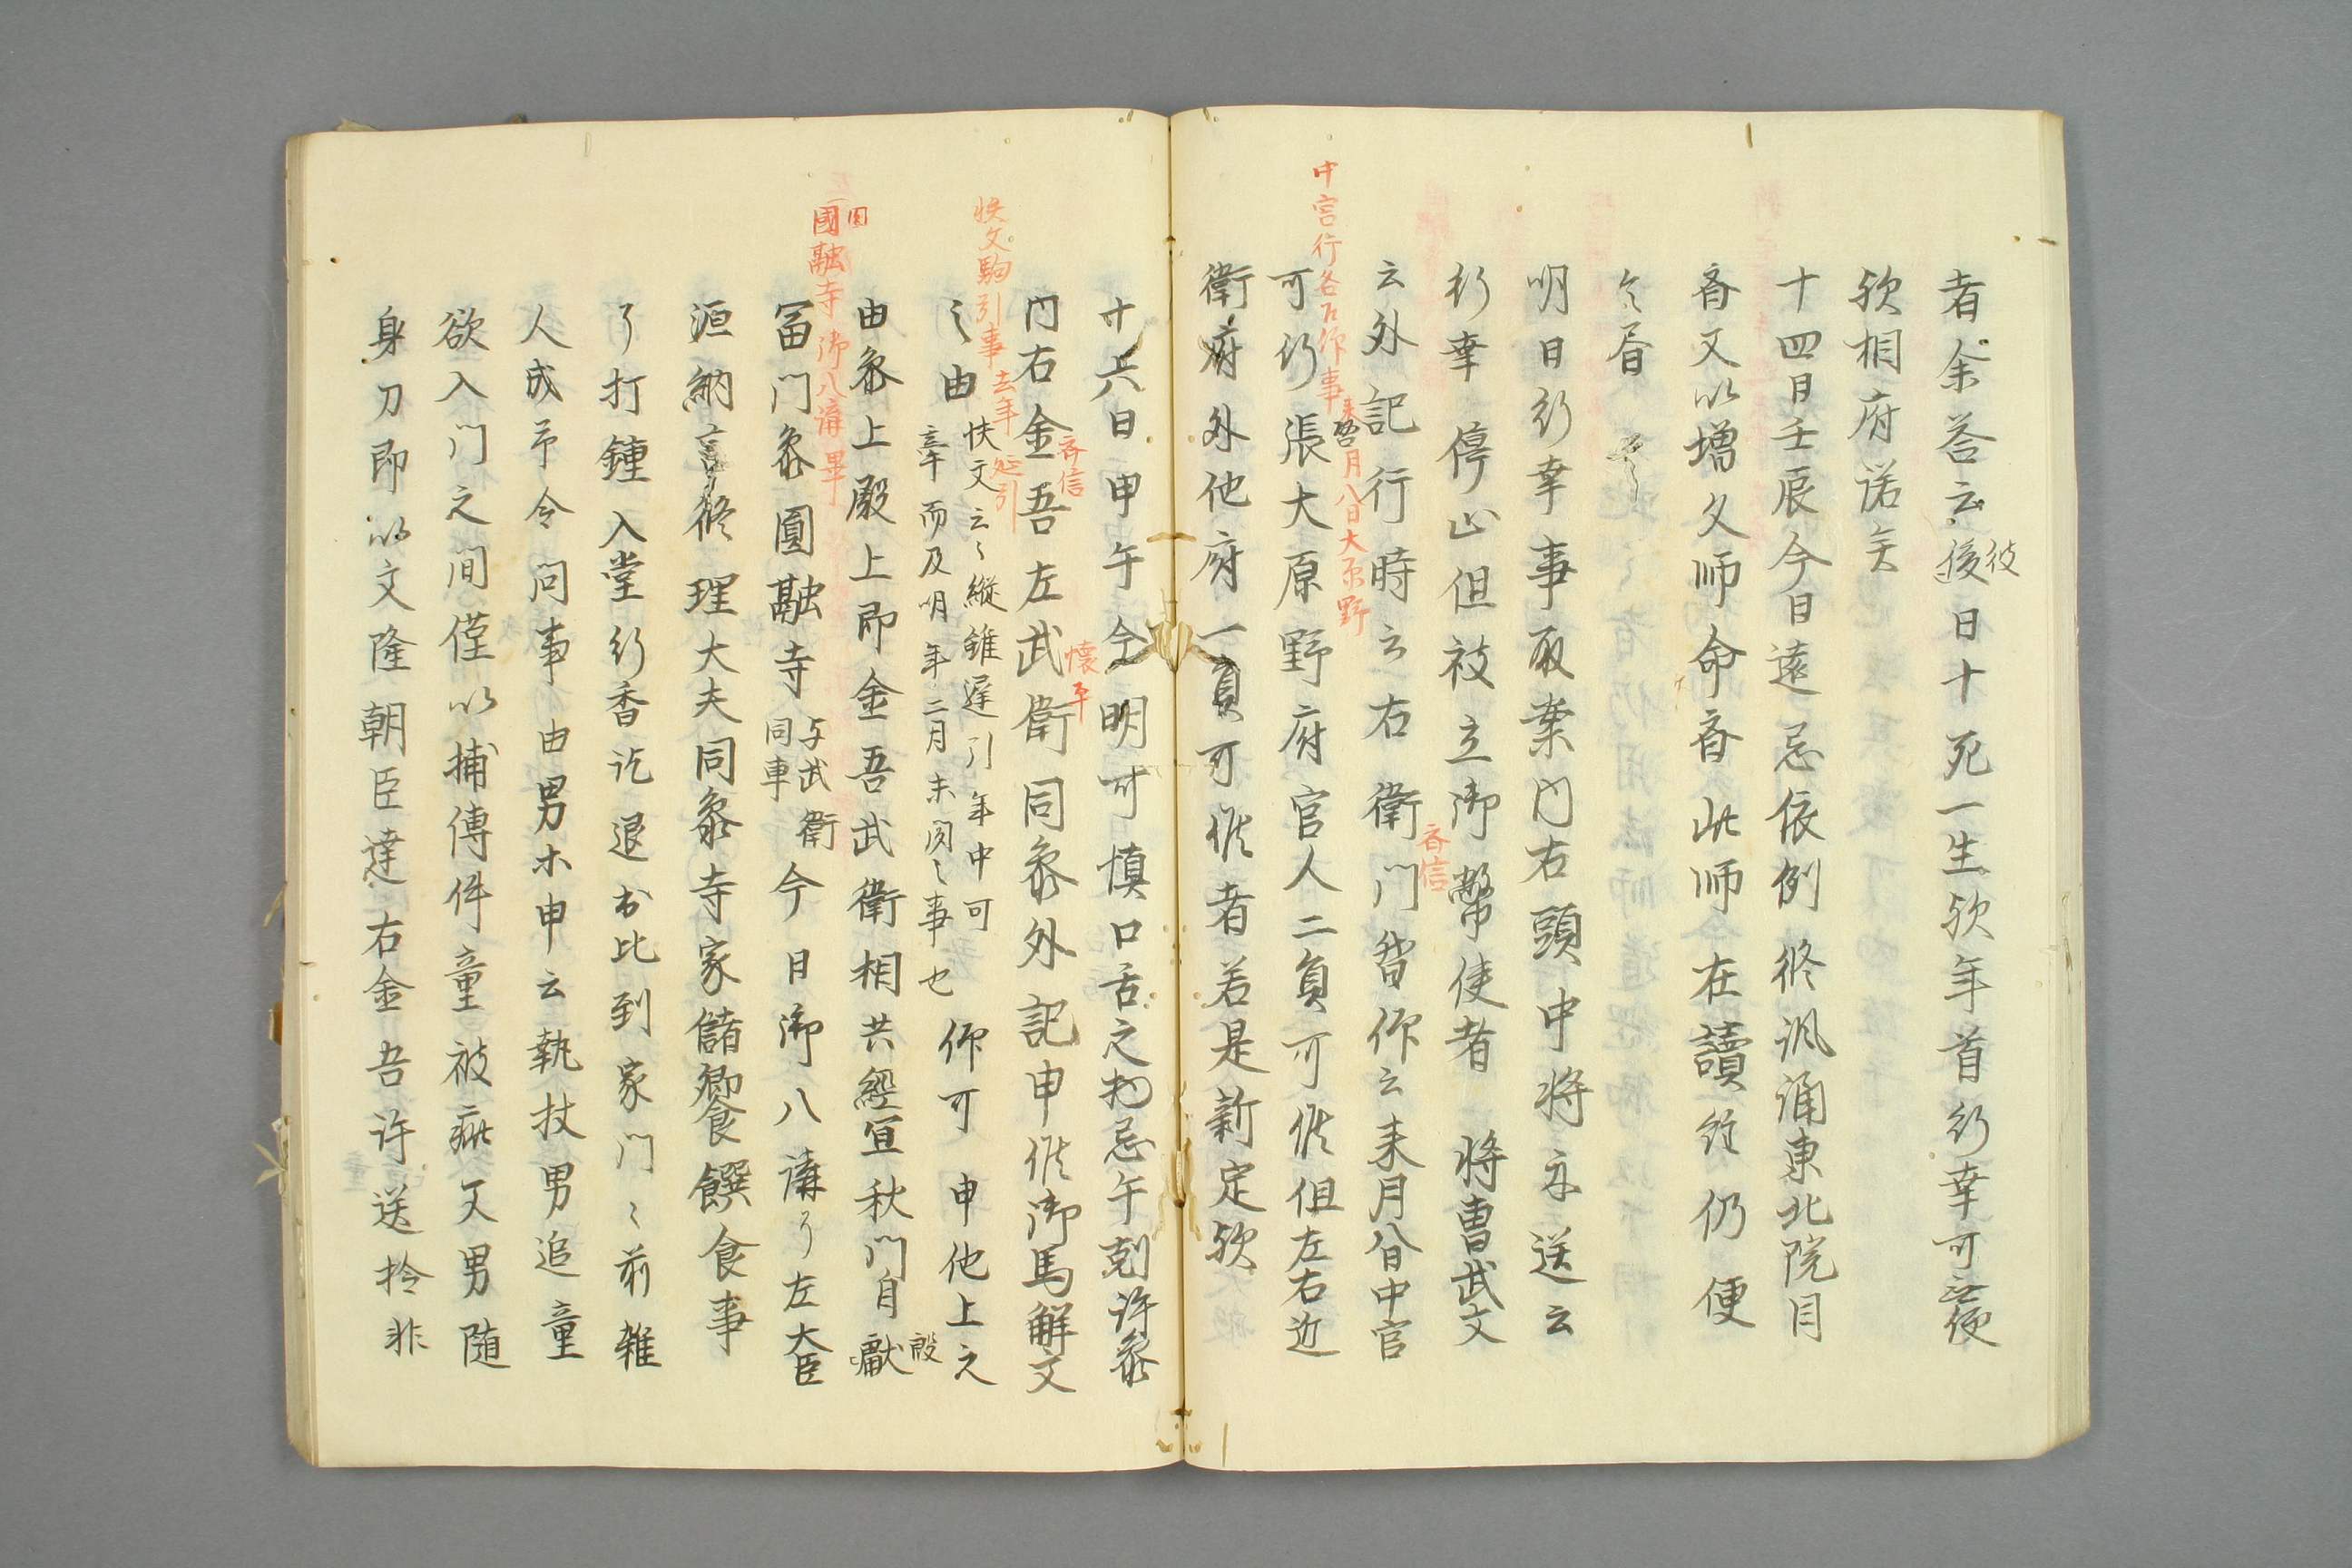 者余答云後日十死一生欤年首行幸可無便
彼
欤相府諾矣
十四日壬辰今日遠忌依例修諷誦東北院目
斉又以増久師命斉此師在讀経仍便
令昏
明日行幸事取案内右頭中将示送云
行幸停止但被立御幣使者将曹武文
云外記行時云右衛門督仰云来月八日中宮
斉信
中宮行各不仰事 来月八日大原野
可行張大原野府官人二負可候但左右近
衛府外他府一負可候者若是新定欤
廿六日甲午今明可慎口舌之物忌午剋許参
内右金吾左武衛同参外記申候御馬解文
斉信
懐平
牧文駒引事 去年延引
之由牧文云々縦雖遅引年中可
牽而及明年二月未聞之事也 仰可申他上之
由参上殿上即金吾武衛相共経宜秋門自獻
殿
國融寺御八講畢
圓
冨門参圓融寺与武衛
同車 今日御八講了左大臣
源納言修理大夫同参寺家儲卿食饌食事
了打鍾入堂行香訖退出比到家門々前雑
人成市令問事由男木申云執杖男追童
欲入門之間僅以捕傳件童被疵又男随
身刀即以文隆朝臣達右金吾許送拎非